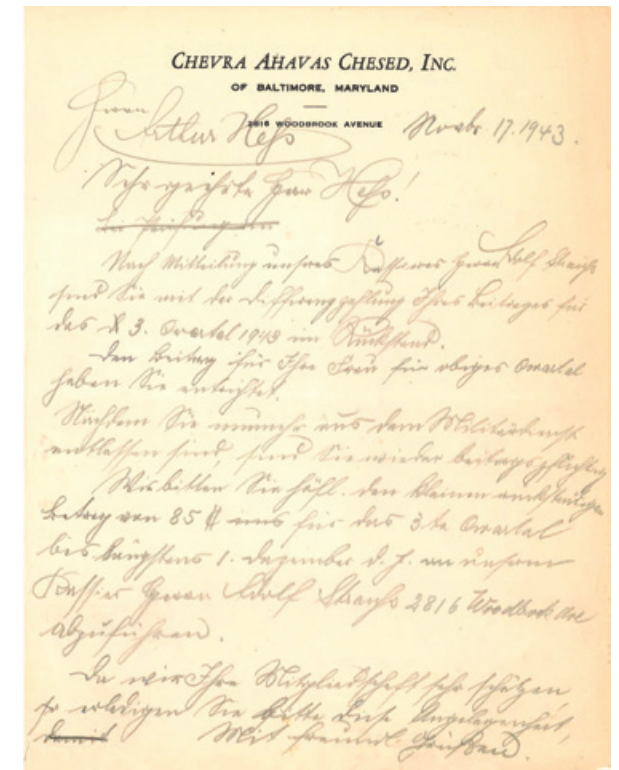 CHEVRA AHAVAS CHESED, INC.
OF BALTIMORE, MARYLAND
2816 WOODBROOK AVENUE
Herrn
Arthur Heß Novbr. 17. 1943.
Sehr geehrter Herr Heß!
Nach Mitteilung unseres Kassierers Herrn Adolf Strauß
sind Sie mit der Differenzzahlung Ihres Beitrages für
das 3. Quartal 1943 im Rückstand.
Den Beitrag für Ihre Frau für obiges Quartal
haben Sie entrichtet.
Nachdem Sie nunmehr aus dem Militärdienst
entlassen sind, sind Sie wieder beitragspflichtig
Wir bitten Sie höfl. den kleinen rückständigen
Betrag von 85 ¢ uns für das 3te Quartal
bis längstens 1. Dezember d. J. an unsern
Kassier Herrn Adolf Strauß 2816 Woodbrok Ave
abzuführen.
Da wir Ihre Mitgliedschaft sehr schätzen,
so erledigen Sie bitte diese Angelegenheit,
damit Mit freundl. Grüßen.